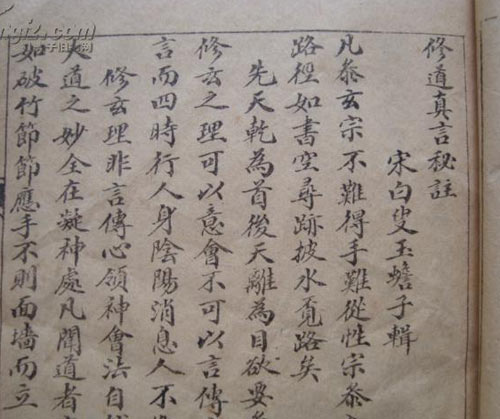 修道真言秘註
宋白叟玉蟾子輯
凡叅玄宗不難得手難從性宗叅
路徑如書空尋跡披水覓路矣
先天乾為首後天離為目欲要
修玄之理可以意會不可以言傳
言而四時行人身陰陽消息人不
修玄理非言傳心領神會法自
大道之妙全在凝神處凡聞道者
如破竹節節應手不則面墻而立